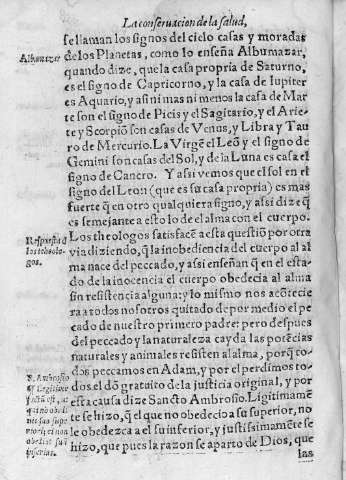 La conseruacion de la salud,
se llaman los signos del cielo casas y moradas
Albumazar
de los Planetas, como lo enseña Albumazar,
quando dize, que la casa propria de Saturno,
es el signo de Capricorno, y la casa de Iupiter
es Aquario, y asi ni mas ni menos la casa de Mar
te son el signo de Picis y el Sagitario, y el Arie-
te y Scorpiō son casas de Venus, y Libra y Tau
ro de Mercurio. La Virgē el Leō y el signo de
Gemini son casas del Sol, y de la Luna es casa el
signo de Cancro. Y assi vemos que el sol en el
signo del Leon (que es su casa propria) es mas
fuerte q̄ en otro qualquiera signo, y assi dize q̄
es semejante a esto lo de el alma con el cuerpo.
Respuesta d̄
los theolo-
gos.
Los theologos satisfacē a esta questiō por otra
via diziendo, q̄ la inobediencia del cuerpo al al
ma nace del peccado, y assi enseñan q̄ en el esta-
do de la inocencia el cuerpo obedecia al alma
sin resistencia alguna: y lo mismo nos acōtecie
ra a todos nosotros quitado de por medio el pe
cado de nuestro primero padre: pero despues
del peccado y la naturaleza cayda las potēcias
naturales y animales resisten al alma, porq̄ to-
dos peccamos en Adam, y por el perdimos to-
S. Ambrosio
dos el dō gratuito de la justicia original, y por
esta causa dize Sancto Ambrosio. Legitimamē
te se hizo, q̄ el que no obedecio a su superior, no
le obedezca a el su inferior, y justissimamēte se
hizo, que pues la razon se aparto de Dios, que
las